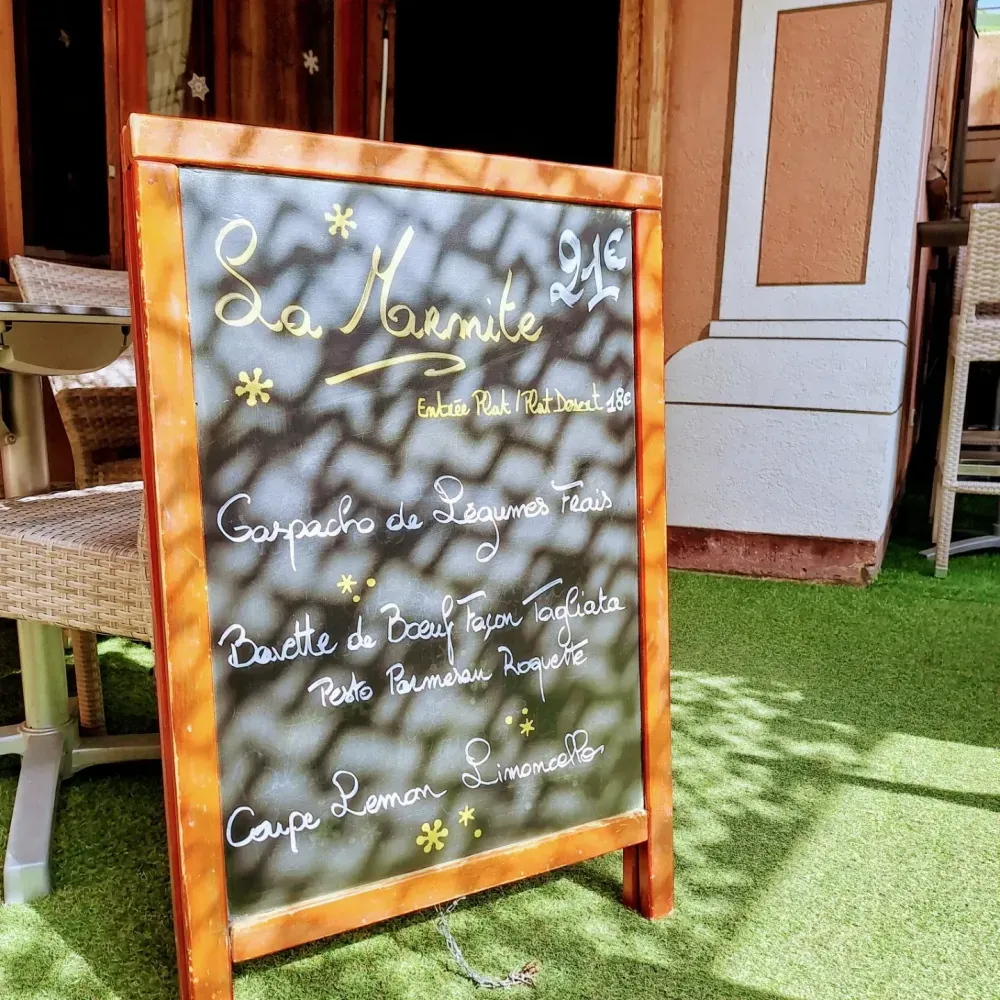 La Marmite 21€
Entrée Plat / Plat Dessert 18€
Gaspacho de Légumes Frais
Bavette de Boeuf Façon Tagliata
Pesto Parmesan Roquette
Coupe Lemon Limoncello